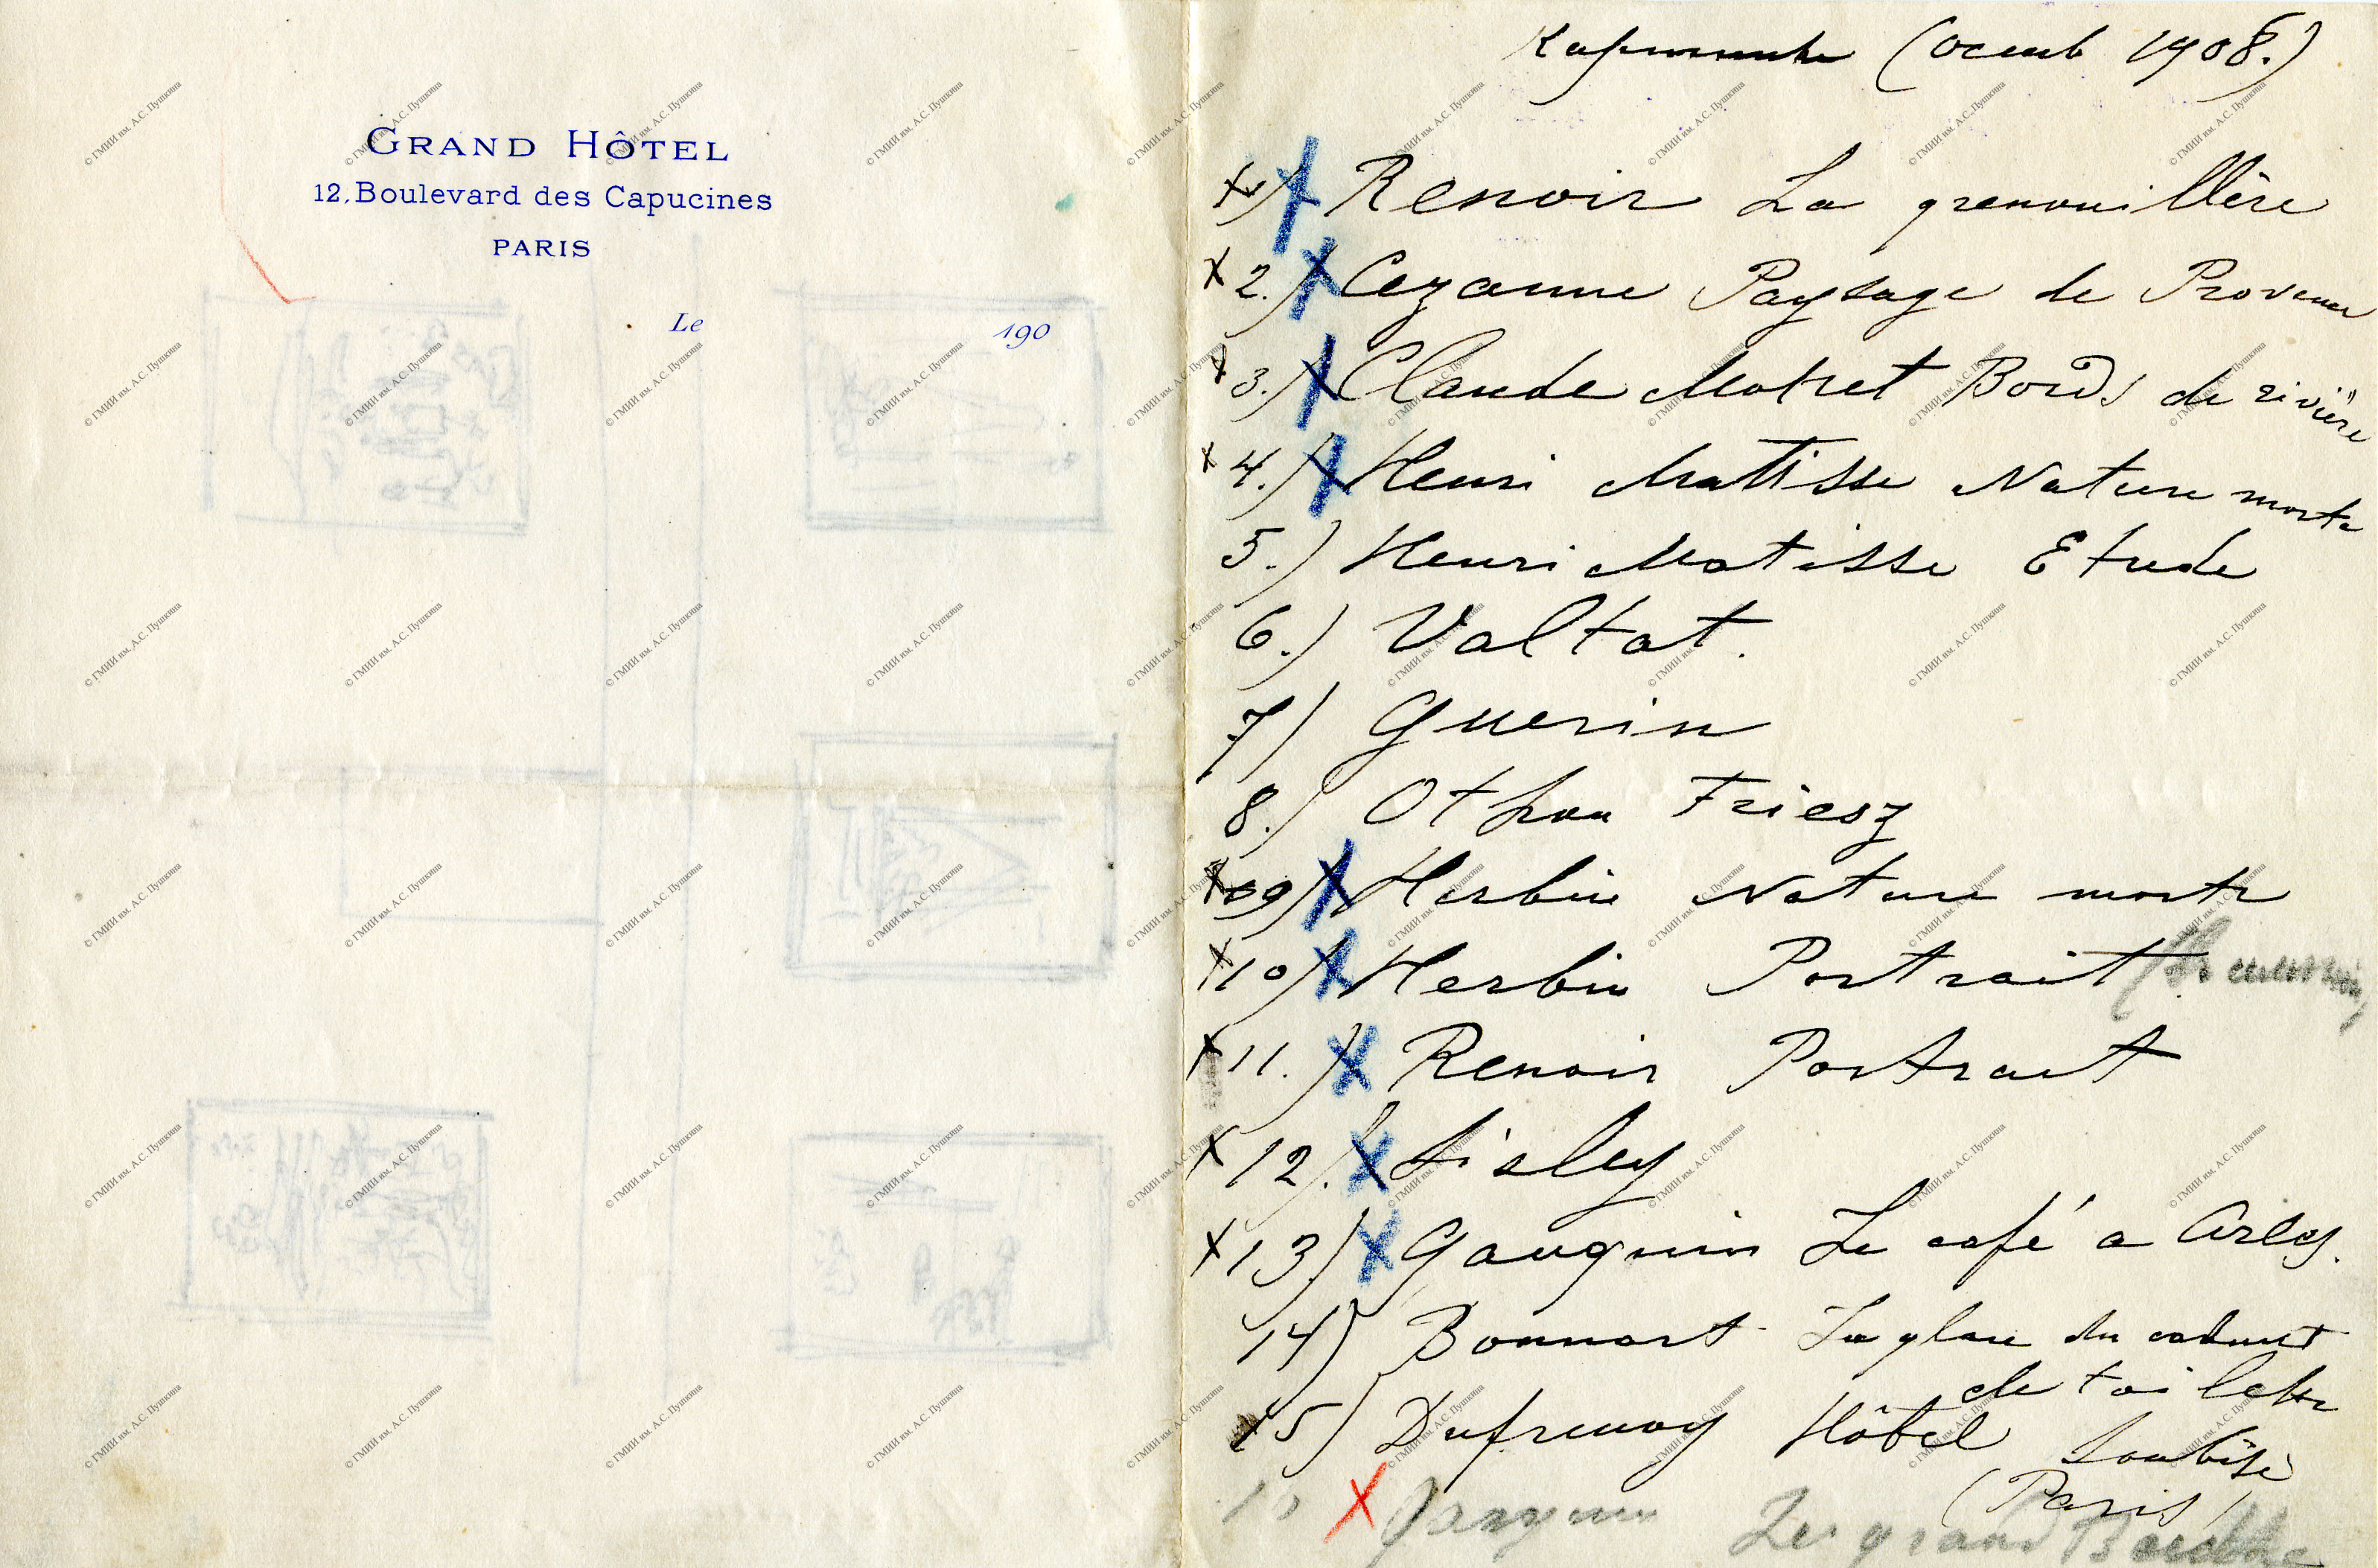 GRAND HÔTEL
12, Boulevard des Capucines
PARIS
Le 190
(осень 1908.)
1) Renoir La grenouillère
2.) Cezanne Paysage de Provence
3.) Claude Monet Bords de rivière
4.) Henri Mattisse Nature morte
5.) Henri Matisse Etude
6.) Valtat.
7) Guerin
8.) Othon Friesz
9) Herbin Nature morte
10) Herbin Portrait
11.) Renoir Portrait
12.) Sisley
13) Gauguin Le café a Arles.
14) Bonnart La glace du cabinet
de toilette
15) Dufrenoy Hôtel Soubise
(Paris)
Le grand
© ГМИИ им. А.С. Пушкина